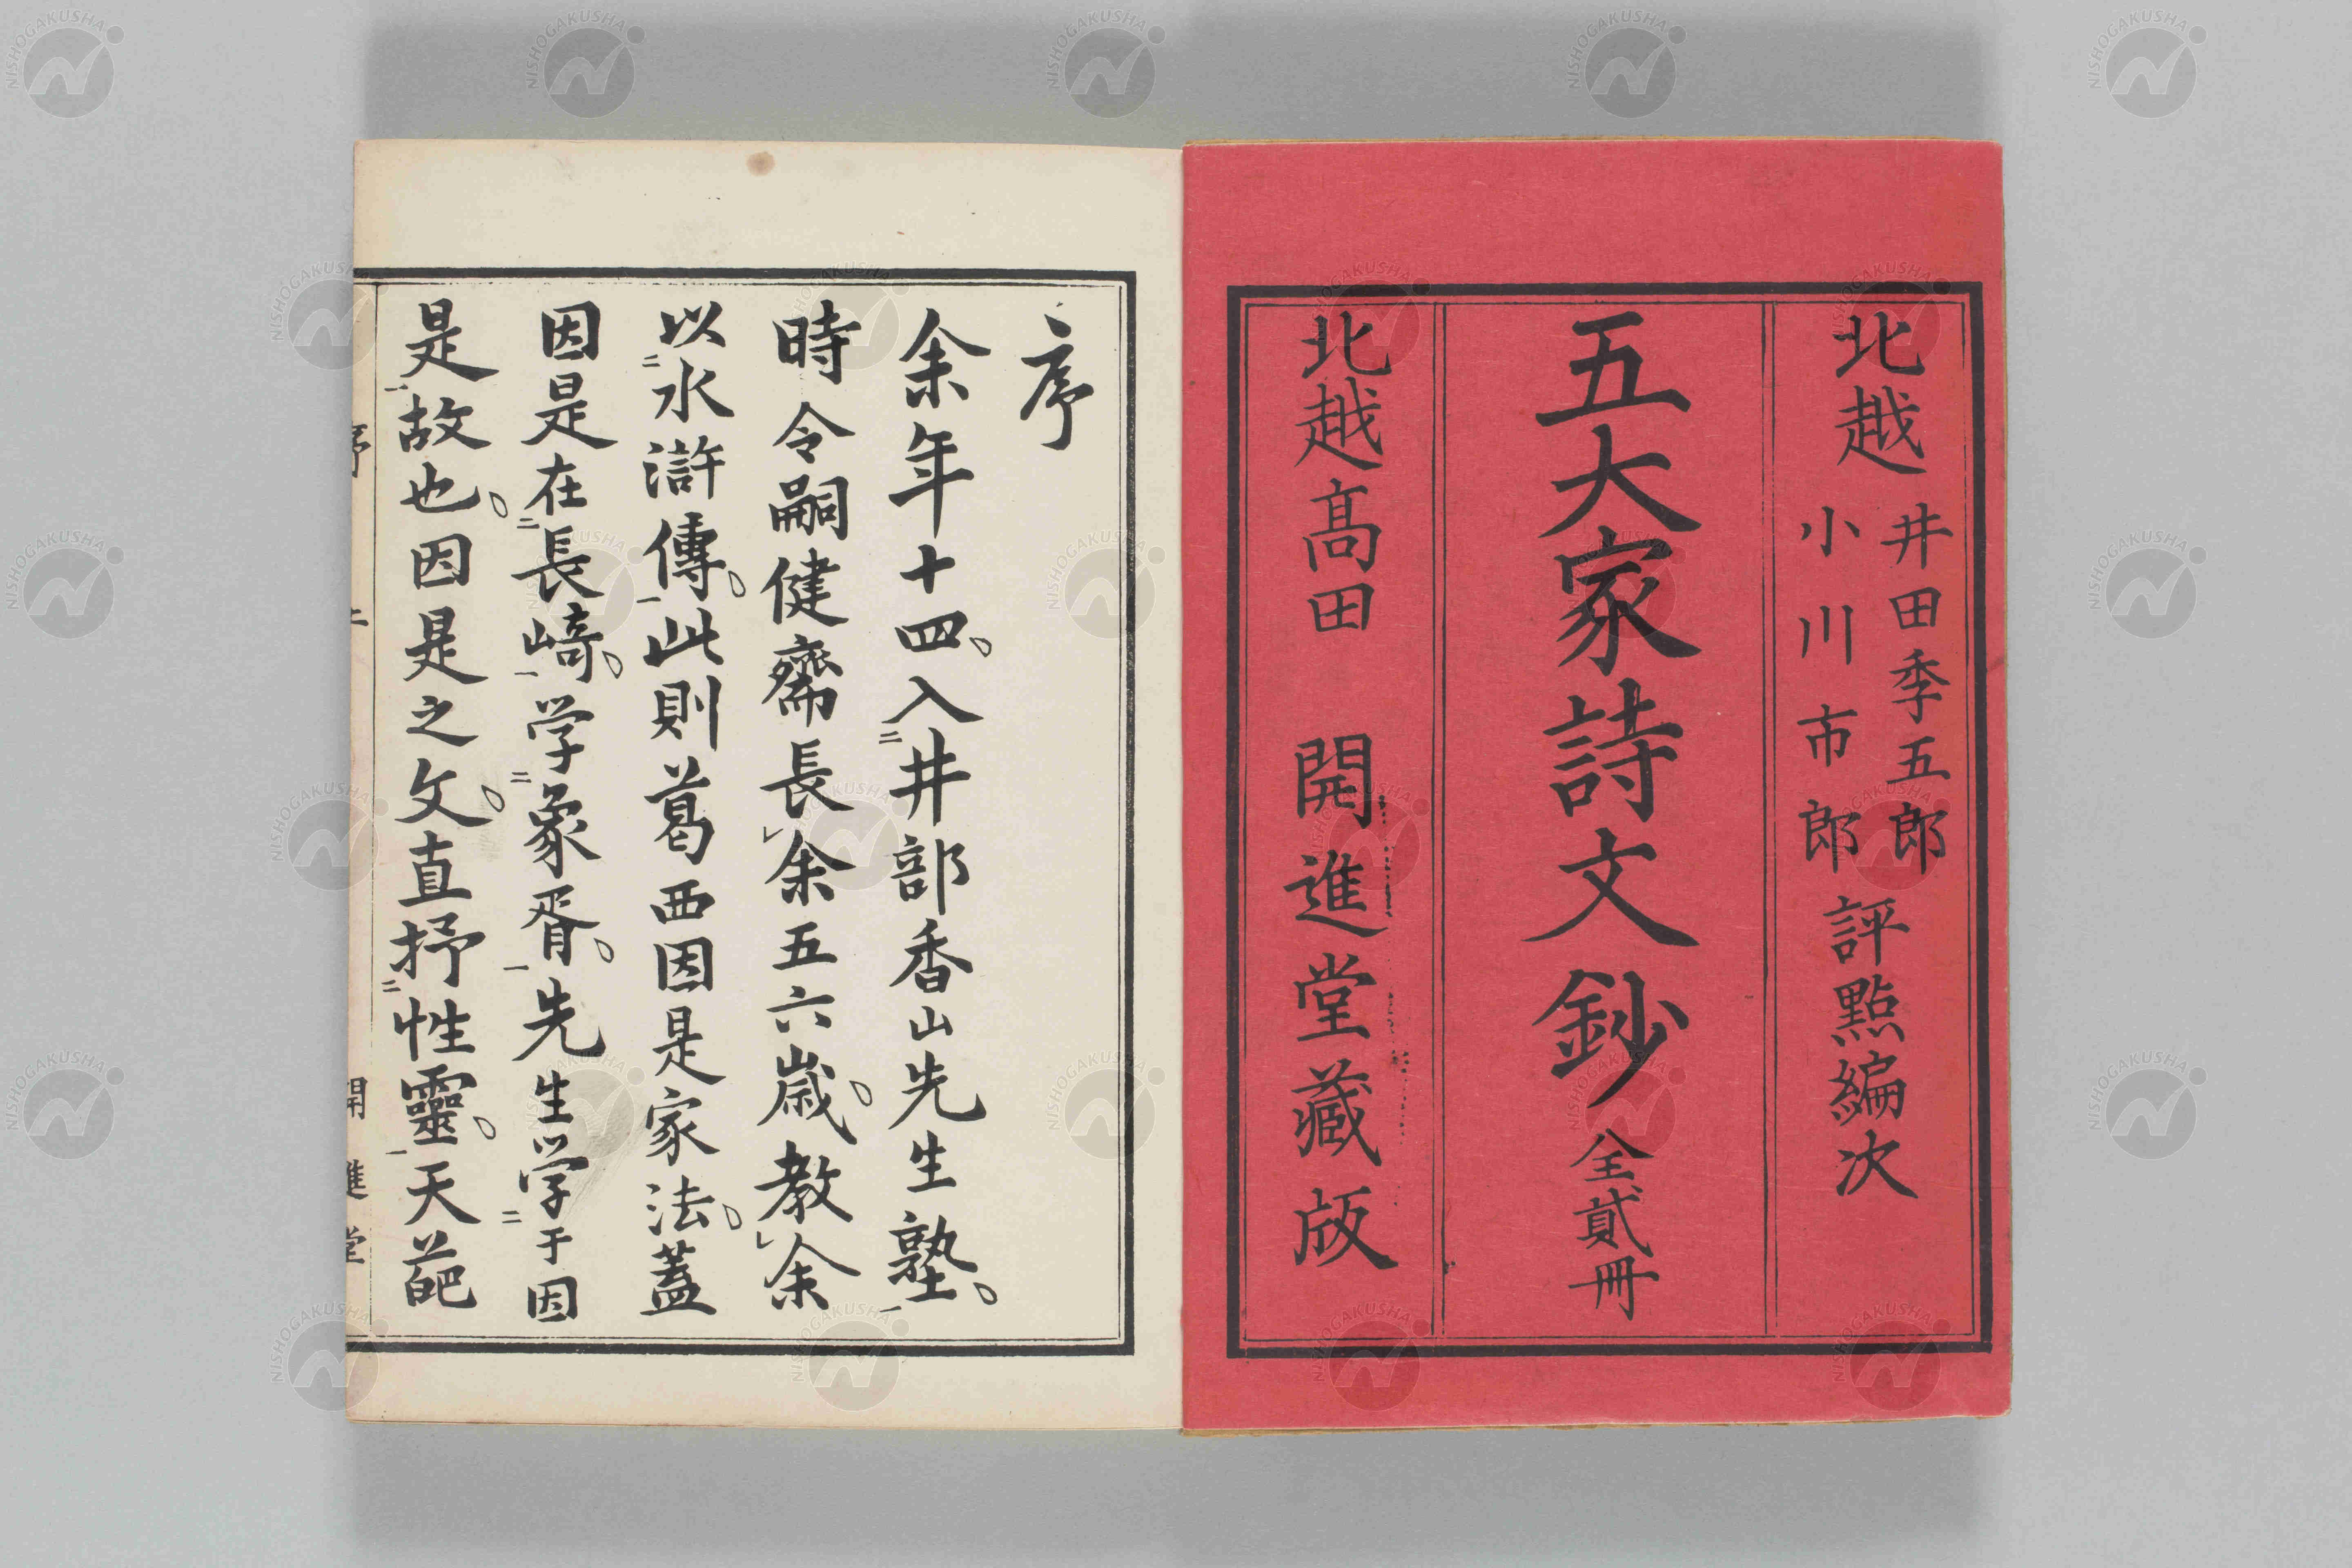 北越 井田季五郎 小川市郎 評點編次
五大家詩文鈔 全貳冊
北越高田 開進堂藏版
序
余年十四入二井部香山先生塾一
時令嗣健齋長レ余五六歳教レ余
以二水滸傳一此則葛西因是家法蓋
因是在二長﨑一学二象胥一先生学二于因
是一故也因是之文直抒二性靈一天葩
序 上 開進堂
NISHOGAKUSHA